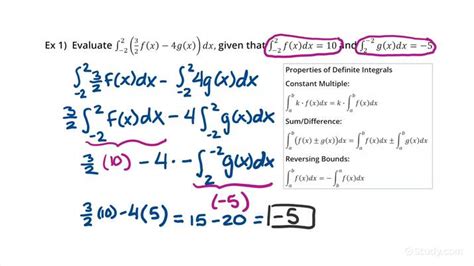 Ex 1) Evaluate ∫₋₂² (3/2 f(x) − 4g(x)) dx, given that ∫₋₂² f(x)dx = 10 and ∫₂⁻² g(x)dx = −5
∫₋₂² 3/2 f(x)dx − ∫₋₂² 4g(x)dx
3/2 ∫₋₂² f(x)dx − 4∫₋₂² g(x)dx
3/2 (10) − 4 · −∫₂⁻² g(x)dx
(−5)
3/2 (10) − 4(5) = 15 − 20 = −5
Properties of Definite Integrals
Constant Multiple:
∫ₐᵇ k · f(x)dx = k · ∫ₐᵇ f(x)dx
Sum/Difference:
∫ₐᵇ (f(x) ± g(x))dx = ∫ₐᵇ f(x)dx ± ∫ₐᵇ g(x)dx
Reversing Bounds:
∫ₐᵇ f(x)dx = −∫ᵇₐ f(x)dx
Study.com